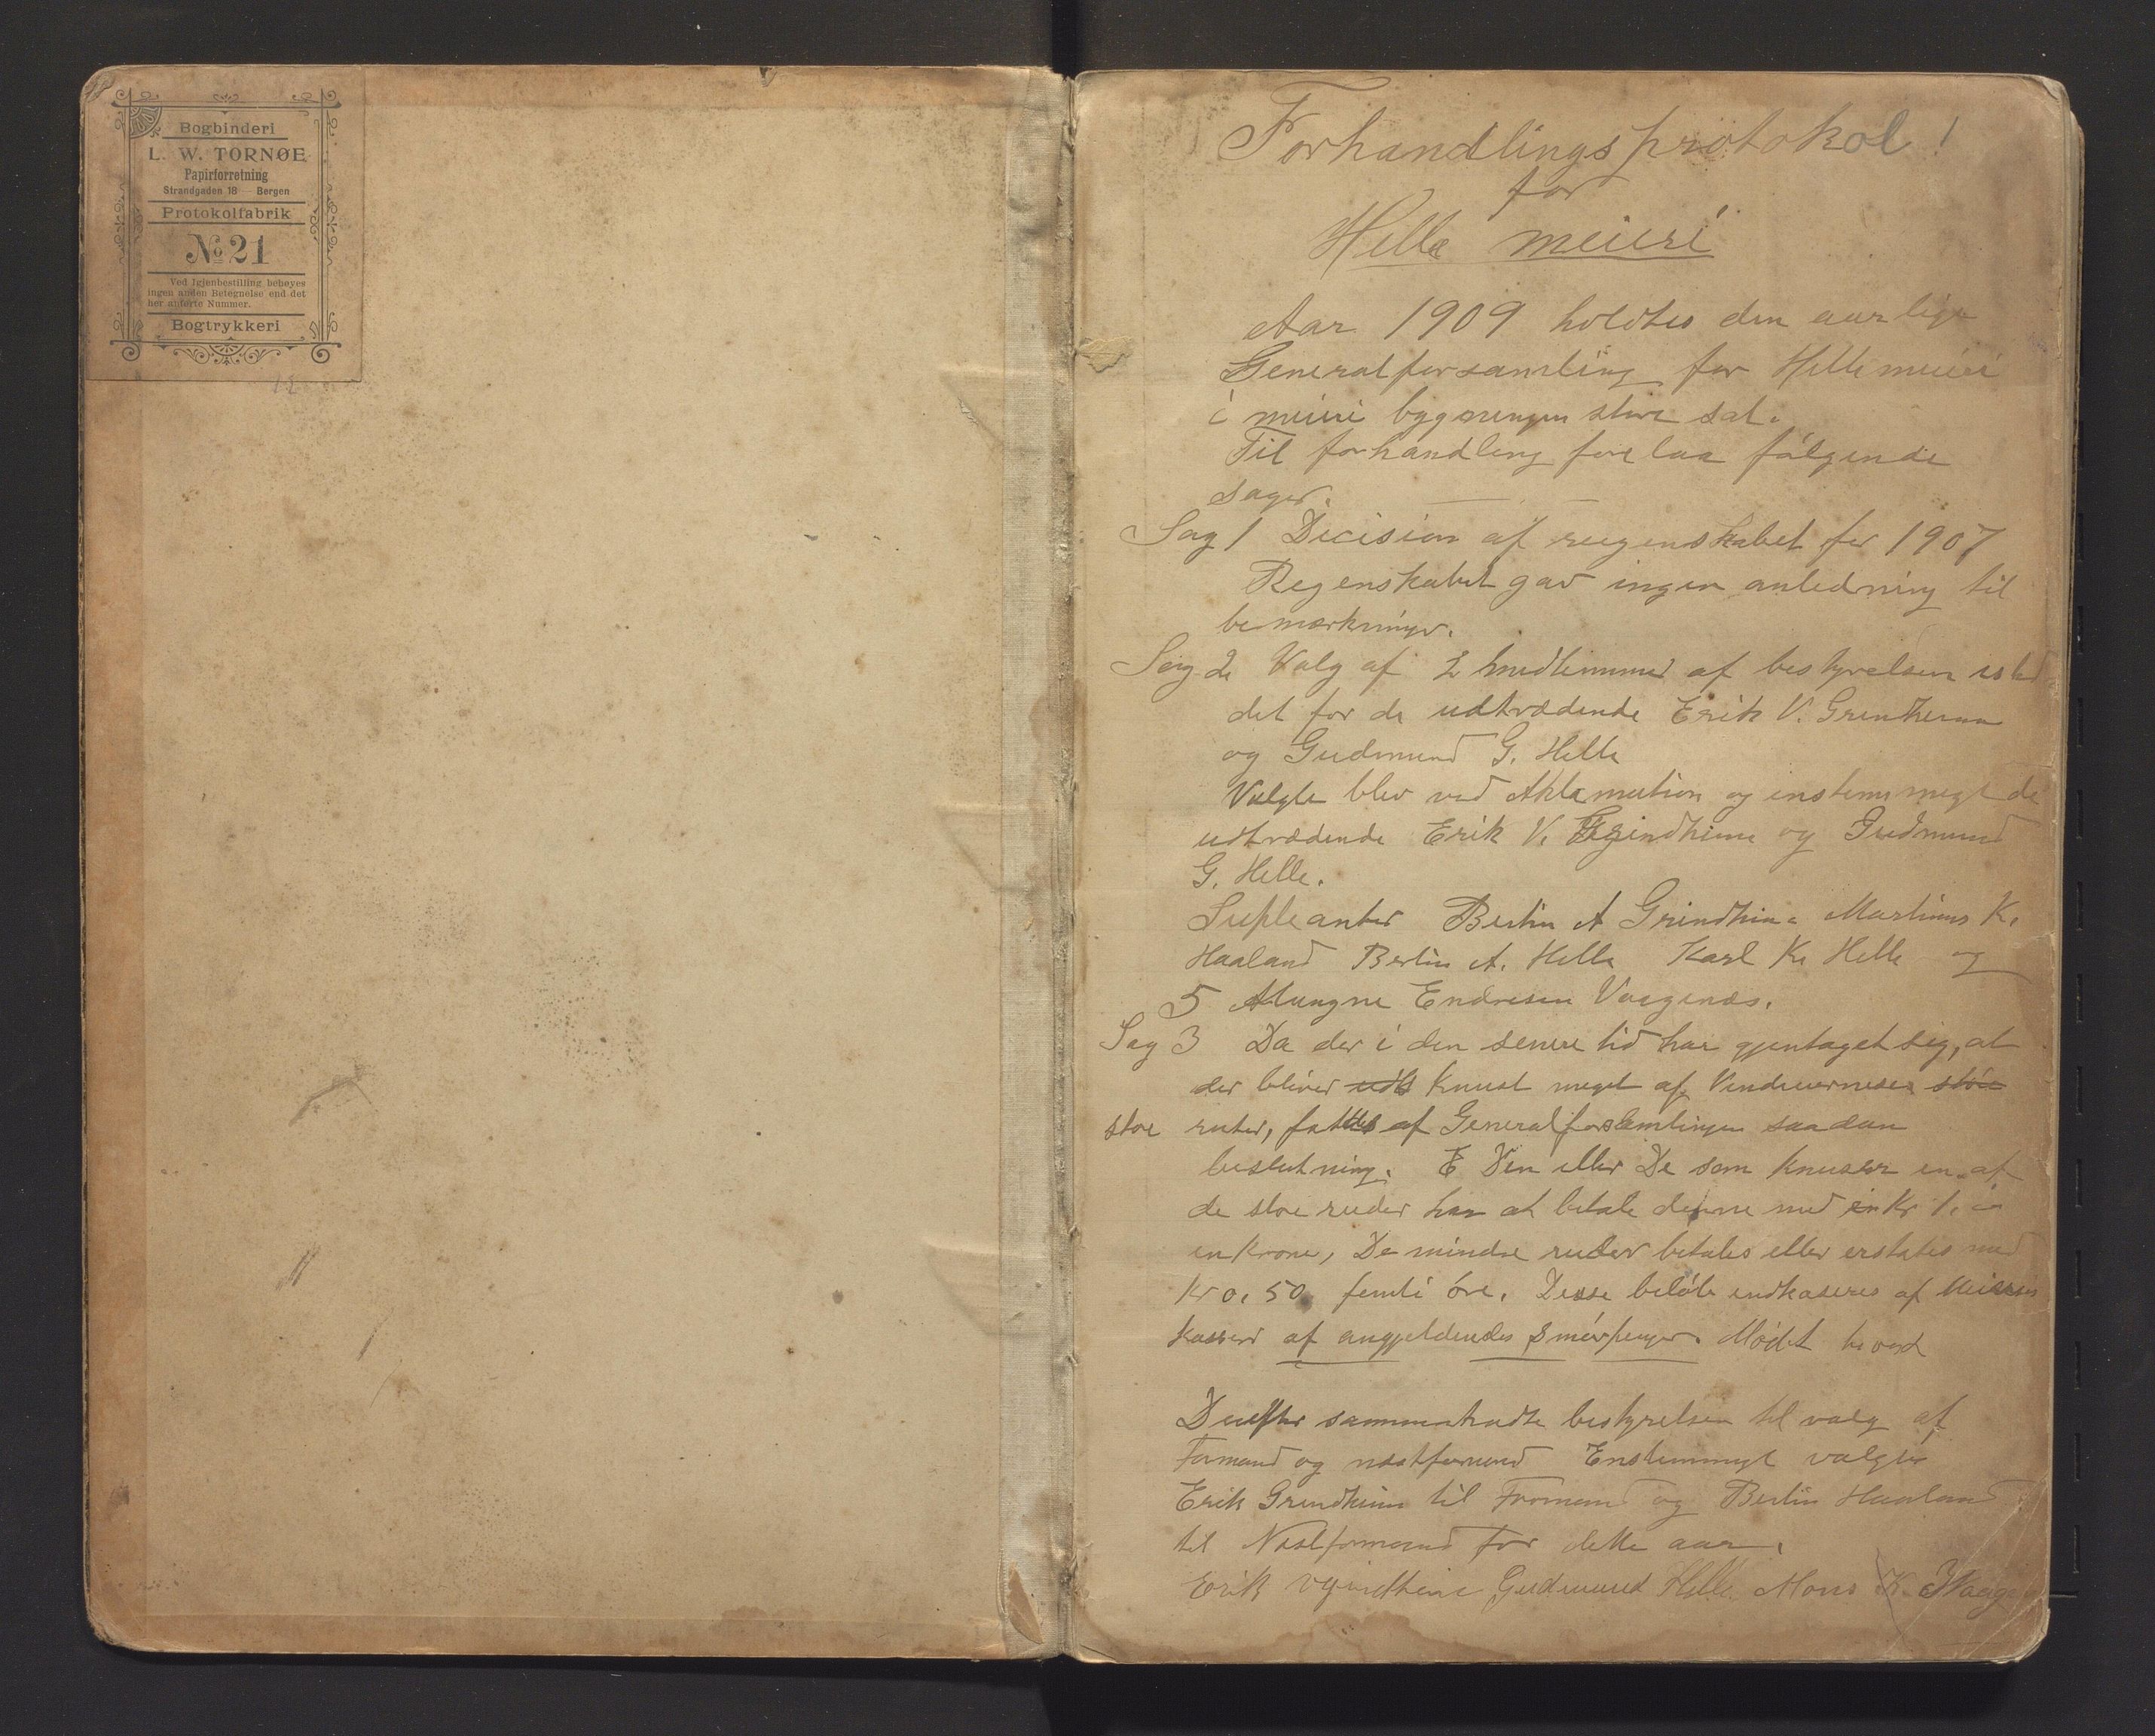 Bogbinderi
L. W. TORNØE
Papirforretning
Strandgaden 18 — Bergen
Protokolfabrik
No 21
Ved Igjenbestilling behøves
ingen anden Betegnelse end det
her anførte Nummer.
Bogtrykkeri
Forhandlingsprotokol!
for
Helle meieri
Aar 1909 holdtes den aarlige
Generalforsamling for Helle meieri
i meieri bygningen store sal.
Til forhandling forelaa følgende
sager.
Sag 1 Decision af regenskabet for 1907
Regenskabet gav ingen anledning til
bemærkninger.
Sag 2 Valg af 2 medlemmer af bestyrelsen isted
det for de udtrædende Erik V. Grindheim
og Gudmund G. Helle
Valgte blev ved Aklamation og enstemmigt de
udtrædende Erik V. Grindheim og Gudmund
G. Helle.
Supleanter Bertin A Grindheim Martinus K.
Haaland Bertin A. Helle Karl K. Helle og
5 Magne Endresen Vaagenæs.
Sag 3 Da der i den senere tid har gjentaget sig, at
der bliver udts knust meget af Vinduernes støre
stoe ruter, fattes af Generalforsamlingen saadan
beslutning. E Den eller De som knuser en af
de stoe ruder har at betale denne med en Kr 1.
en krone, De mindre ruder betales eller erstates med
Kr 0,50 femti øre. Desse beløb indkaseres af Meieriets
kasserer af angjeldendes smørpenger. Mødet hævet
Derefter sammentradte bestyrelsen til valg af
Formand og næstformand Enstemmigt valgtes
Erik Grindheim til Formand og Bertin Haaland
til Næstformand for dette aar.
Erik V Grindheim Gudmund Helle Mons K.